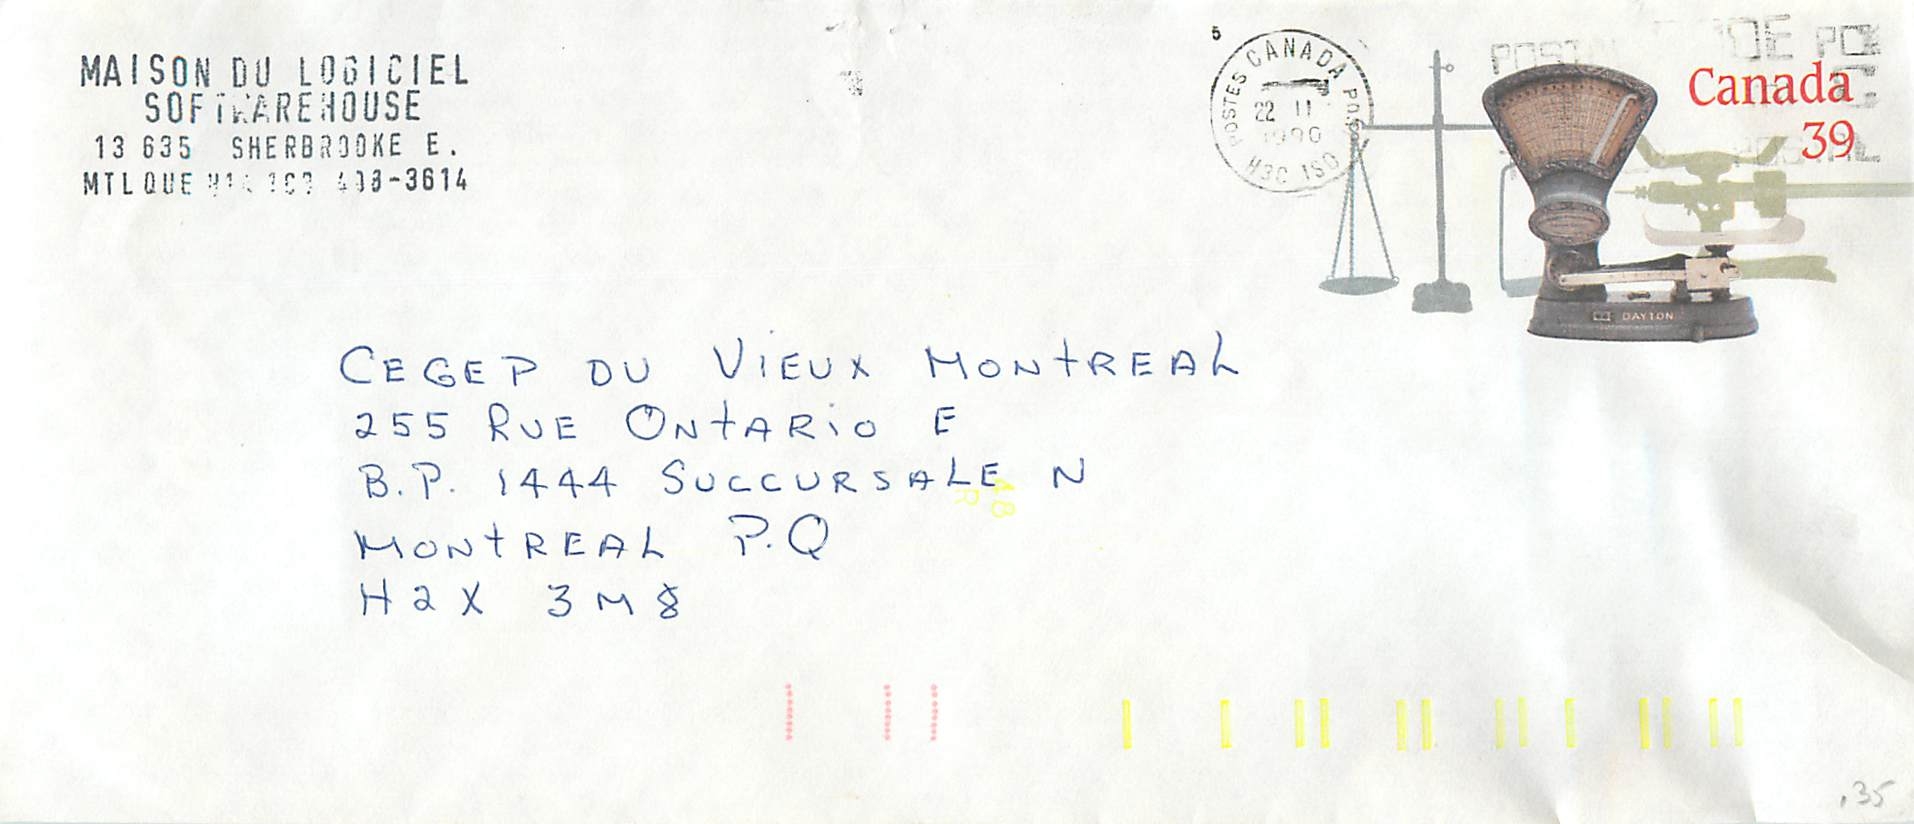 MAISON DU LOGICIEL
SOFTWAREHOUSE
13 635 SHERBROOKE E.
MTL QUE -3614
5
POSTES CANADA POST
22 II
1990
H3C 1S0
Canada
39
DAYTON
CEGEP DU VIEUX MONTREAL
255 RUE ONTARIO E
B.P. 1444 SUCCURSALE N
MONTREAL P.Q
H2X 3M8
48
R
.35